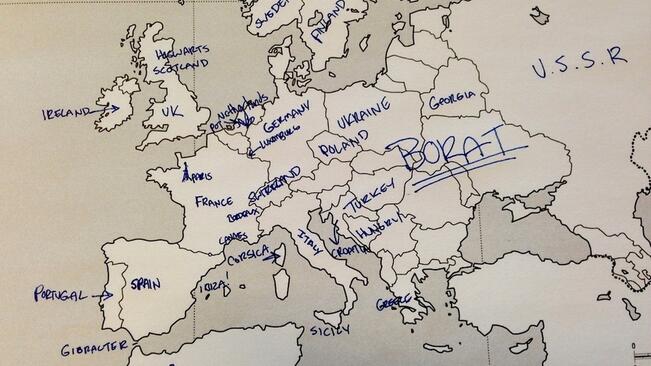 SWEDEN
FINLAND
HOGWARTS
SCOTLAND
U.S.S.R
IRELAND
UK
GERMANY
LUXEMBURG
UKRAINE
POLAND
GEORGIA
BORAT
PARIS
FRANCE
BORDEAUX
TURKEY
HUNGRY
ITALY
CROATIA
CORSICA
IBIZA!
PORTUGAL
SPAIN
GREECE
SICILY
GIBRALTER